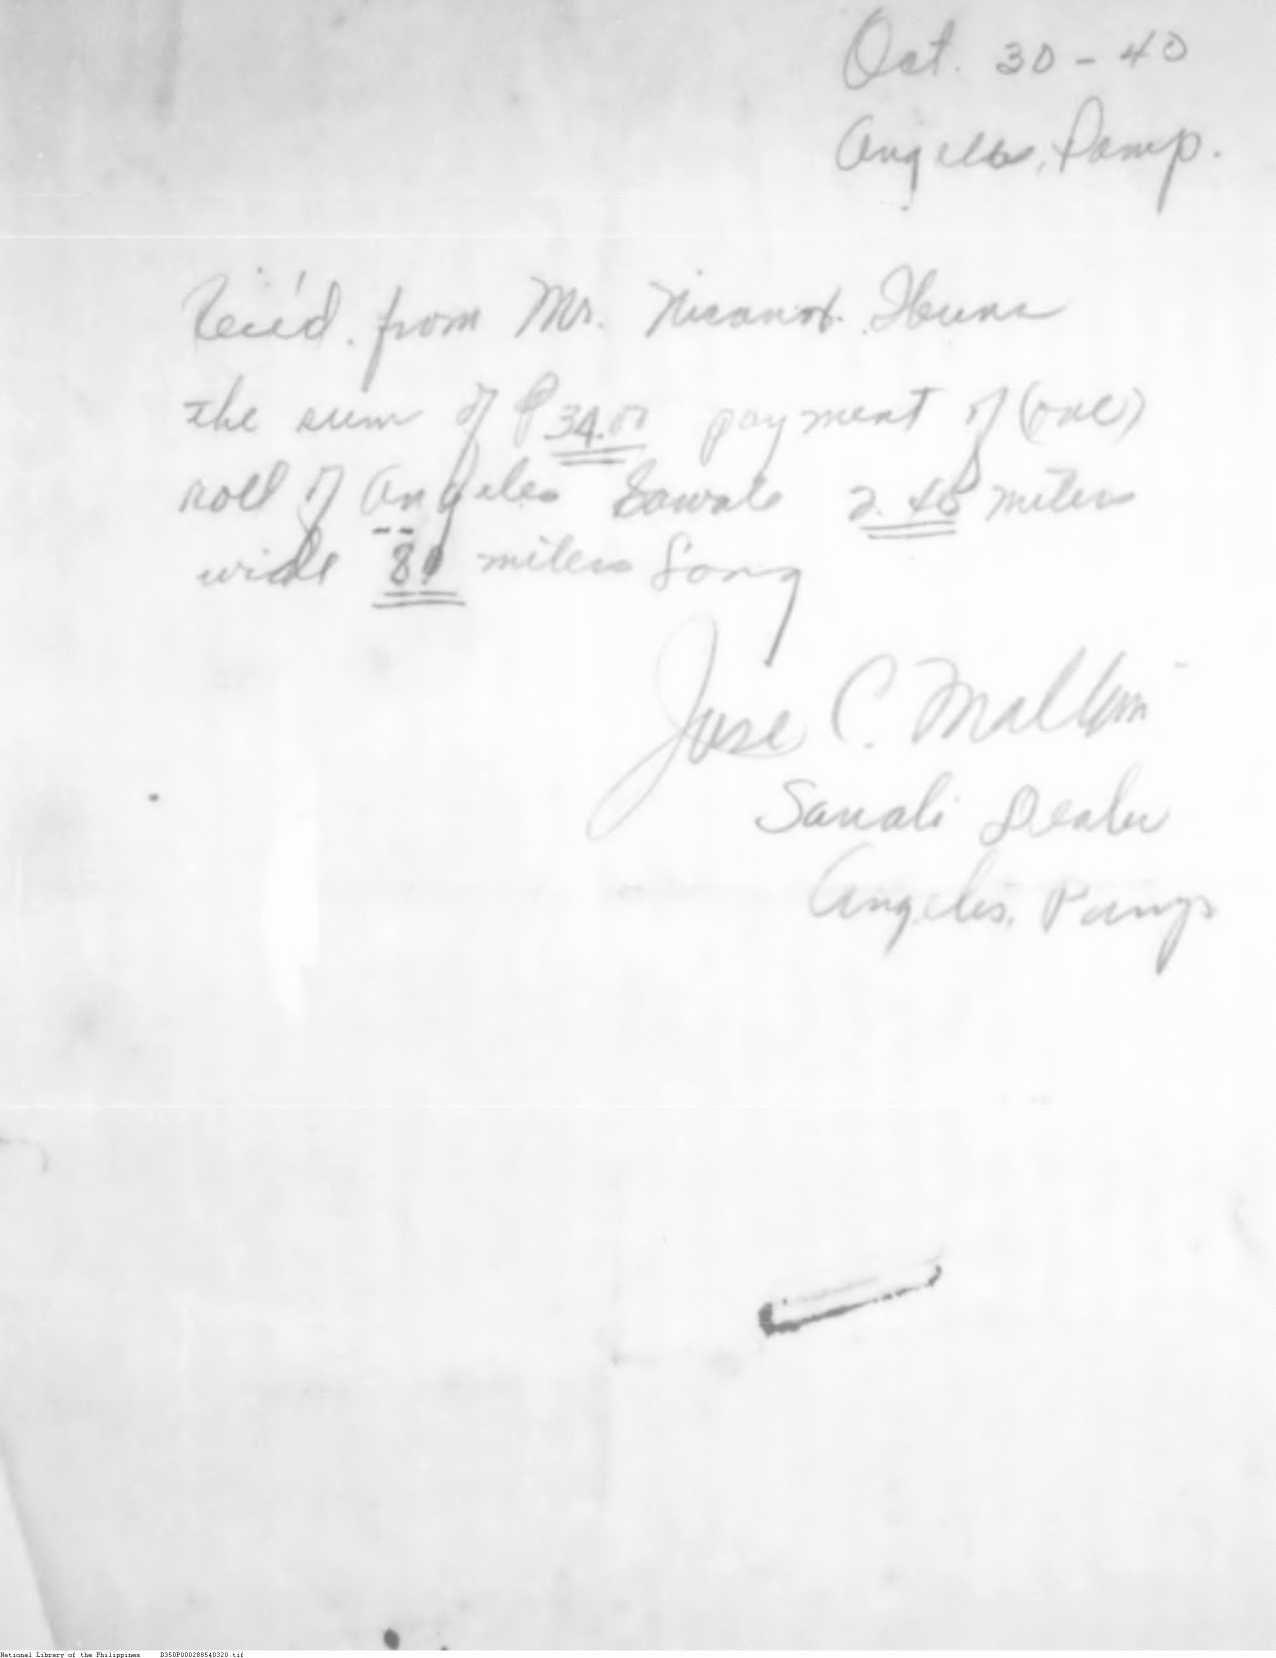 Oct. 30 - 40
Angeles, Pamp.
Rec'd. from Mr. Nicanor
the sum of ₱34.00 payment of (one)
roll of Angeles Sawale 2.40 meters
wide meters long
Jose C.
Sawali Dealer
Angeles, Pamp
National Library of the Philippines D350P000288540320.tif